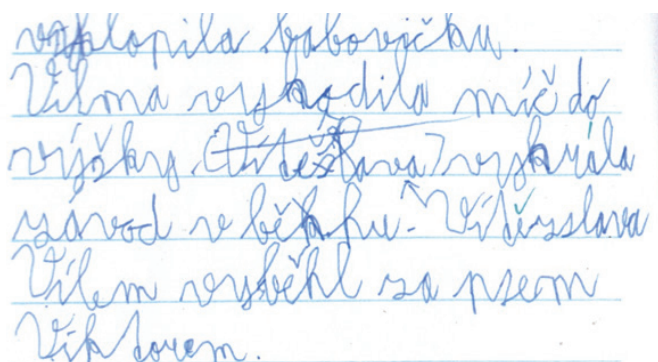 vyklopila babovičku.
Vilma vyhodila míč do
výšky. (Vítěslava) vyhrála
závod v běhu. Vítězslava
Vilem vyběhl za psem
Viktorem.